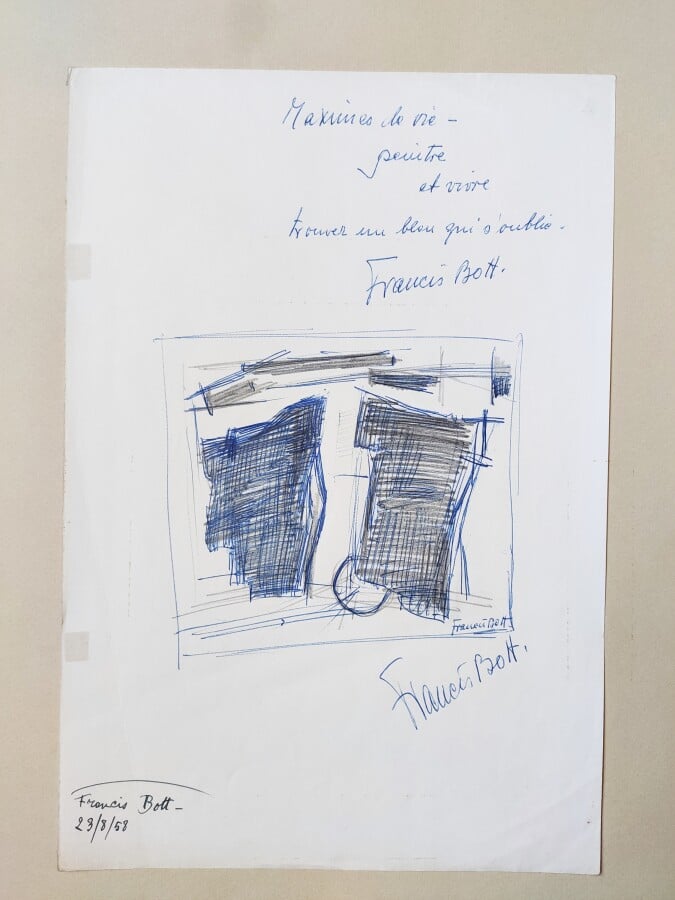 Maximes de vie -
peintre
et vivre
trouver un bleu qui s'oublie.
Francis Bott.
Francis Bott
Francis Bott.
Francis Bott -
23/8/58